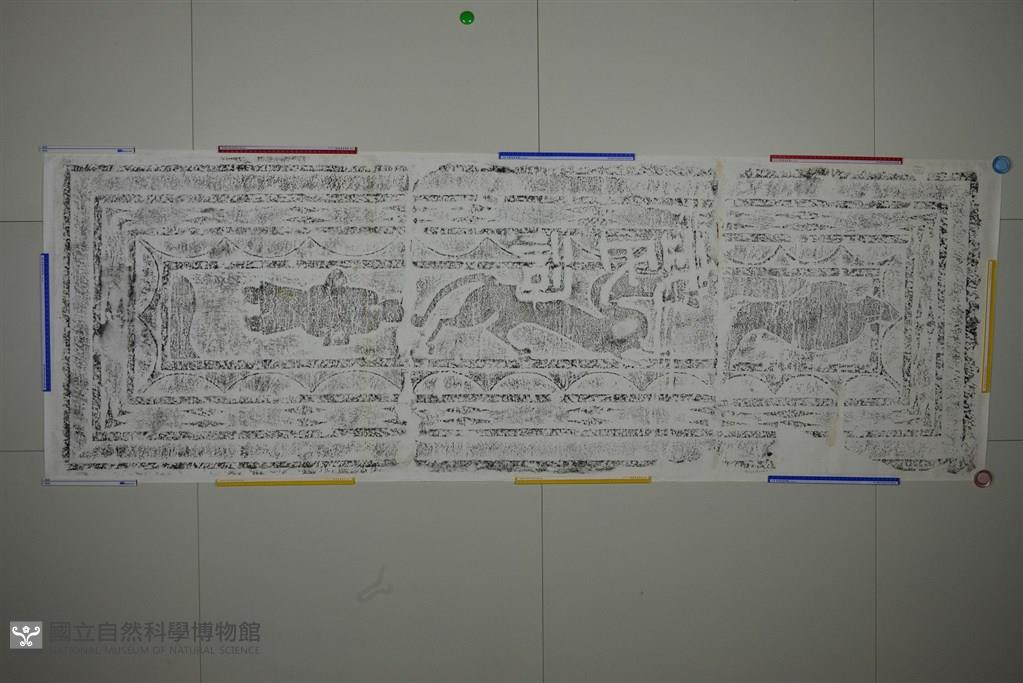 國立自然科學博物館
NATIONAL MUSEUM OF NATURAL SCIENCE